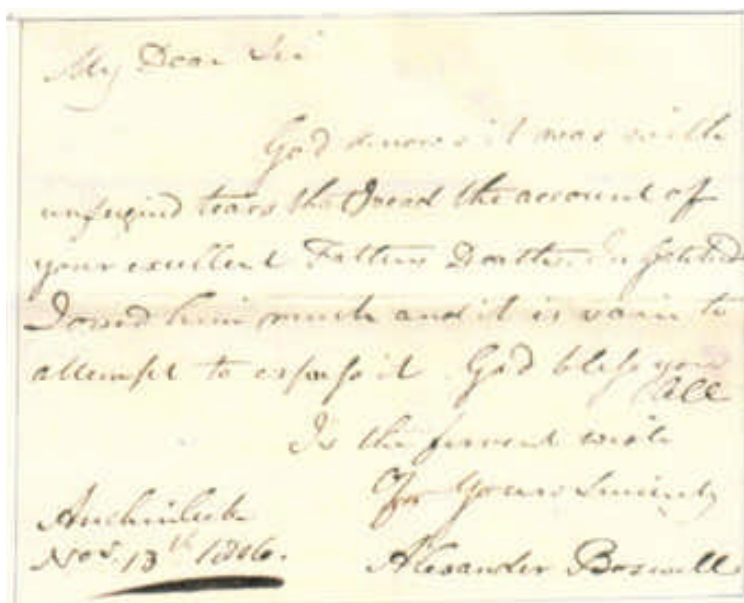 My Dear Sir
God knows it was with
unfeigned tears that I read the account of
your excellent Fathers Death. In
I owed him much and it is vain to
attempt to express it. God bless you
all
Is the fervent wish
Of Yours Sincerely
Auchinleck
Novr. 13th 1806.
Alexander Boswell